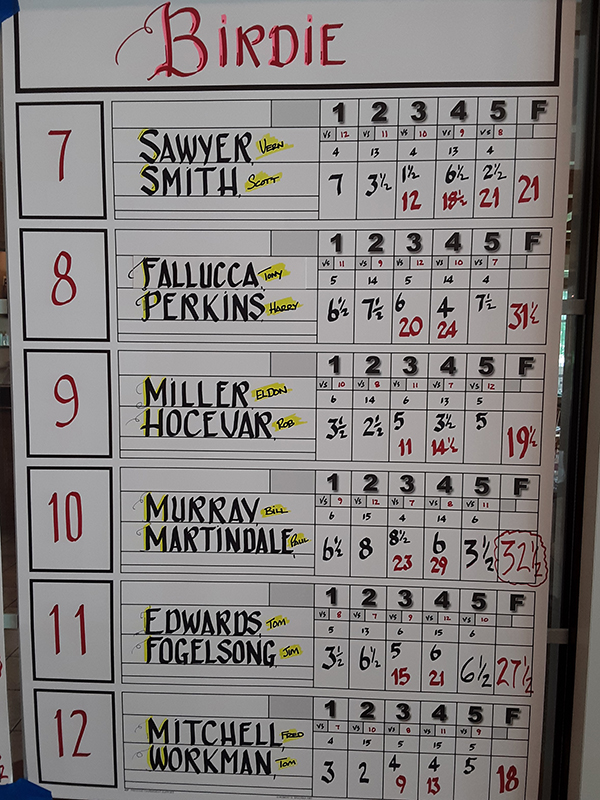 BIRDIE
7
1 2 3 4 5 F
VS 12 VS 11 VS 10 VS 9 VS 8
4 13 4 13 4
SAWYER, VERN
SMITH, SCOTT
7 3½ 1½ 6½ 2½ 21
12 18½ 21
8
1 2 3 4 5 F
VS 11 VS 9 VS 12 VS 10 VS 7
5 14 5 14 4
FALLUCCA, TONY
PERKINS, HARRY
6½ 7½ 6 4 7½ 31½
20 24
9
1 2 3 4 5 F
VS 10 VS 8 VS 11 VS 7 VS 12
6 14 6 13 5
MILLER, ELDON
HOCEVAR, ROB
3½ 2½ 5 3½ 5 19½
11 14½
10
1 2 3 4 5 F
VS 9 VS 12 VS 7 VS 8 VS 11
6 15 4 14 6
MURRAY, BILL
MARTINDALE, PAUL
6½ 8 8½ 6 3½ 32½
23 29
11
1 2 3 4 5 F
VS 8 VS 7 VS 9 VS 12 VS 10
5 13 6 15 6
EDWARDS, TOM
FOGELSONG, JIM
3½ 6½ 5 6 6½ 27½
15 21
12
1 2 3 4 5 F
VS 7 VS 10 VS 8 VS 11 VS 9
4 15 5 15 5
MITCHELL, FRED
WORKMAN, TOM
3 2 4 4 5 18
9 13